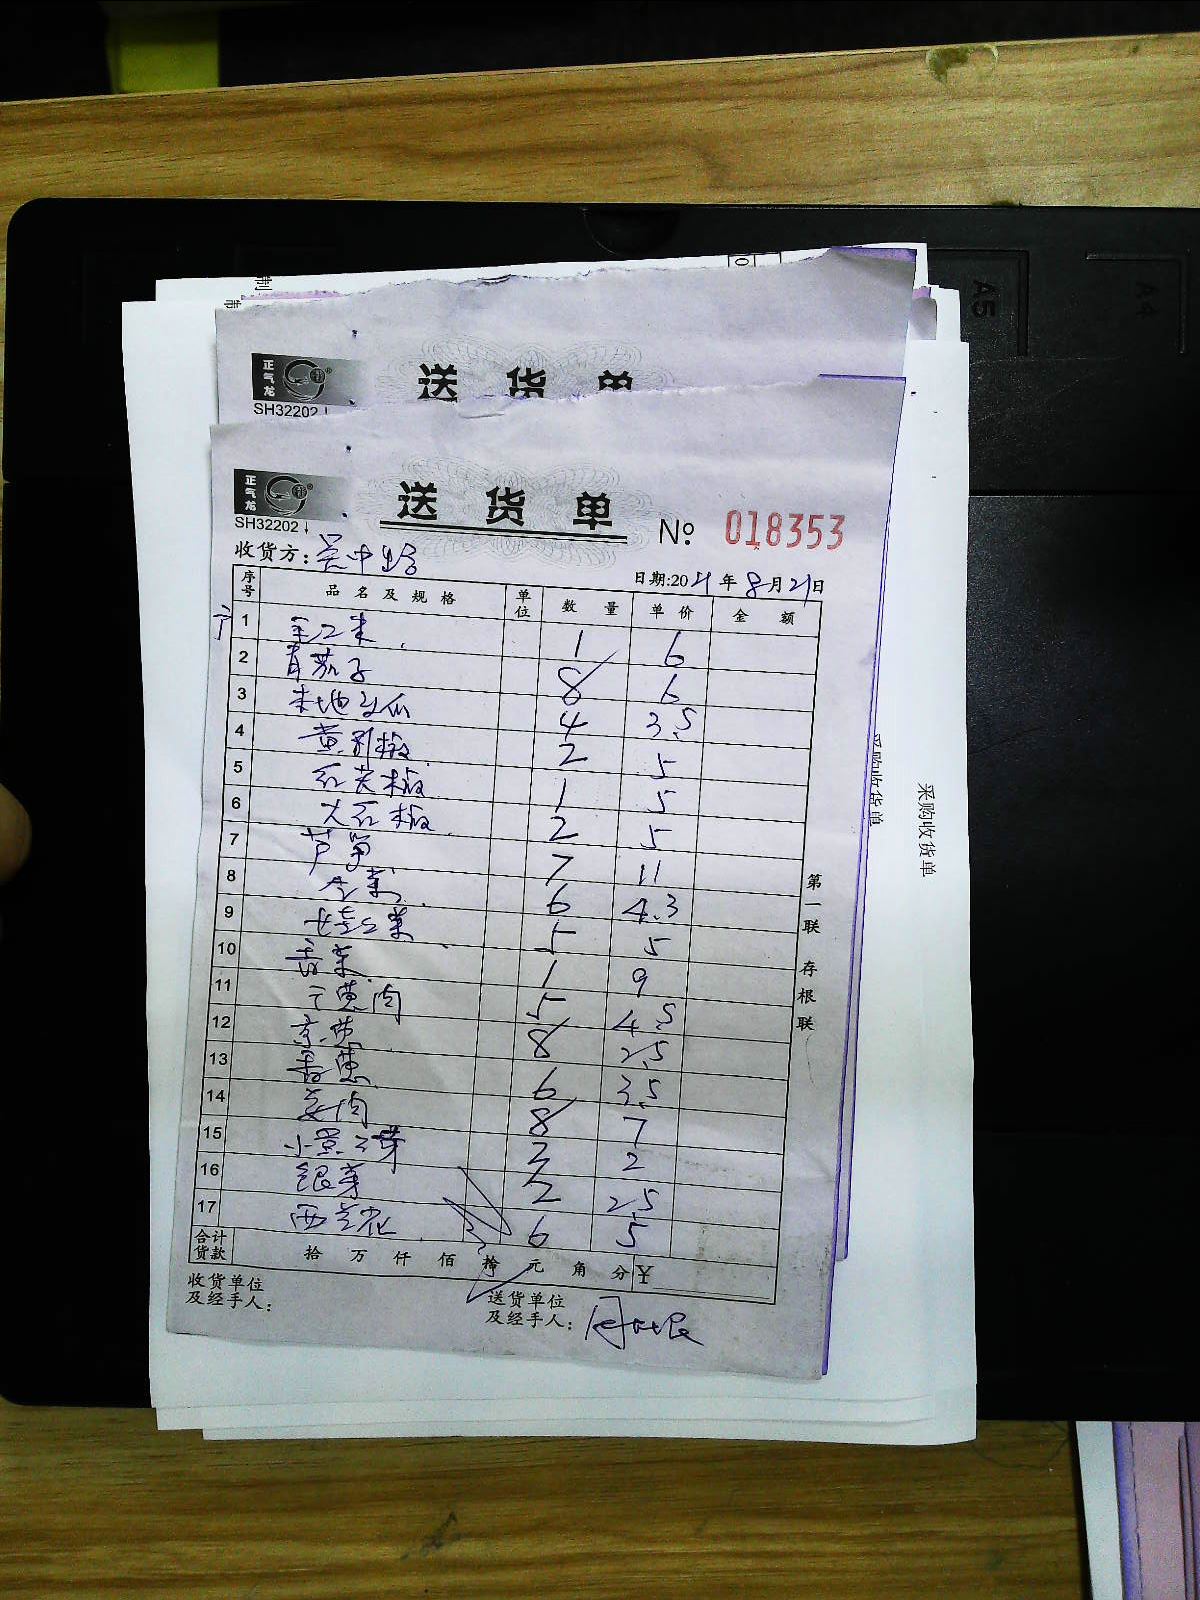 制
正气龙
送货单
SH32202
A5
A4
正气龙
送货单
SH32202
№ 018353
收货方:吴中
日期:2021年8月21日
序号 品名及规格 单位 数量 单价 金额
1 1 6
2 青茄子 8 6
3 本地 瓜 4 3.5
4 黄 椒 2 5
5 红尖椒 1 5
6 大红椒 2 5
7 芦笋 7 11
8 6 4.3
9 娃娃菜 5 5
10 香菜 1 9
11 葱肉 5 4.5
12 京葱 8 2.5
13 香葱 6 3.5
14 姜肉 8 7
15 小黄豆芽 2 2
16 银芽 2 2.5
17 西兰花 6 5
合计货款 拾 万 仟 佰 拾 元 角 分 ¥
收货单位及经手人:
送货单位及经手人:
第一联 存根联
采购收货单
采购收货单